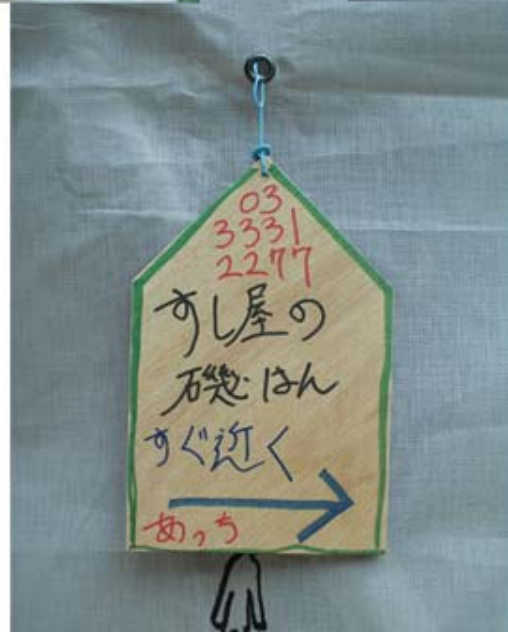 03
3331
2277
すし屋の
磯はん
すぐ近く
あっち